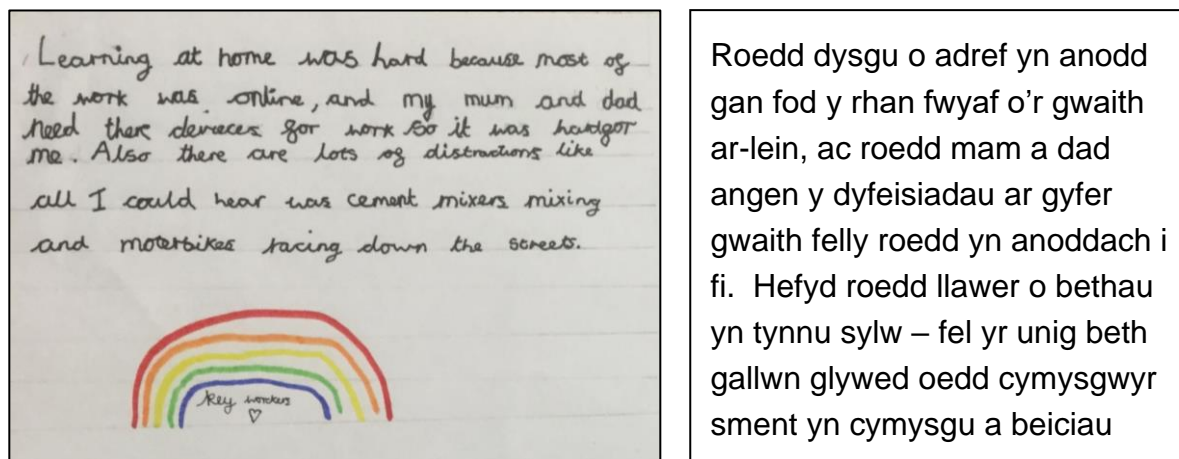 Learning at home was hard because most of
the work was online, and my mum and dad
need there devieces for work so it was hardgor
me. Also there are lots of distractions like
all I could hear was cement mixers mixing
and moterbikes racing down the streets.
key workers
Roedd dysgu o adref yn anodd
gan fod y rhan fwyaf o'r gwaith
ar-lein, ac roedd mam a dad
angen y dyfeisiadau ar gyfer
gwaith felly roedd yn anoddach i
fi.  Hefyd roedd llawer o bethau
yn tynnu sylw – fel yr unig beth
gallwn glywed oedd cymysgwyr
sment yn cymysgu a beiciau